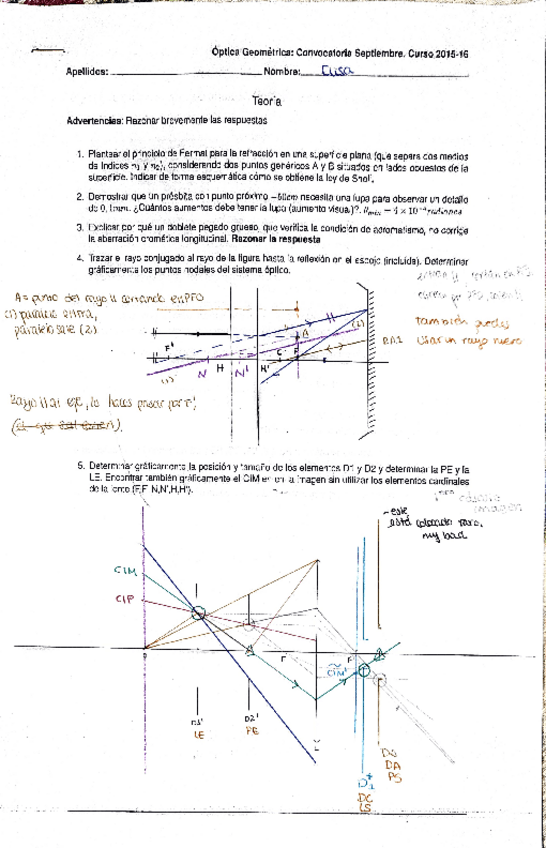 Óptica Geométrica: Convocatoria Septiembre. Curso 2015-16
Apellidos: Nombre:
Teoría
Advertencias: Razonar brevemente las respuestas
1. Plantear el principio de Fermat para la refracción en una superficie plana (que separa dos medios
de índices n₁ y n₂), considerando dos puntos genéricos A y B situados en lados opuestos de la
superficie. Indicar de forma esquemática cómo se obtiene la ley de Snell.
2. Demostrar que un présbita con punto próximo −50cm necesita una lupa para observar un detalle
de 0,1mm. ¿Cuántos aumentos debe tener la lupa (aumento visual)?
3. Explicar por qué un doblete pegado grueso, que verifica la condición de acromatismo, no corrige
la aberración cromática longitudinal. Razonar la respuesta
4. Trazar el rayo conjugado al rayo de la figura hasta la reflexión en el espejo (incluida). Determinar
gráficamente los puntos nodales del sistema óptico.
A = punto del rayo
(1) paralelo entra,
paralelo sale (2)
también puedes
usar un rayo nuevo
(2)
F'
A
C F
N H N' H'
(1)
Rayo // al eje, lo haces pasar por F'
5. Determinar gráficamente la posición y tamaño de los elementos D1 y D2 y determinar la PE y la
LE. Encontrar también gráficamente el CIM en la imagen sin utilizar los elementos cardinales
de la lente (F,F',N,N',H,H').
- este
está colocado raro,
my bad
CIM
CIP
F F'
CIM'
D1' D2' L
LE PE
D2
DA
PS
D1
DC
LS